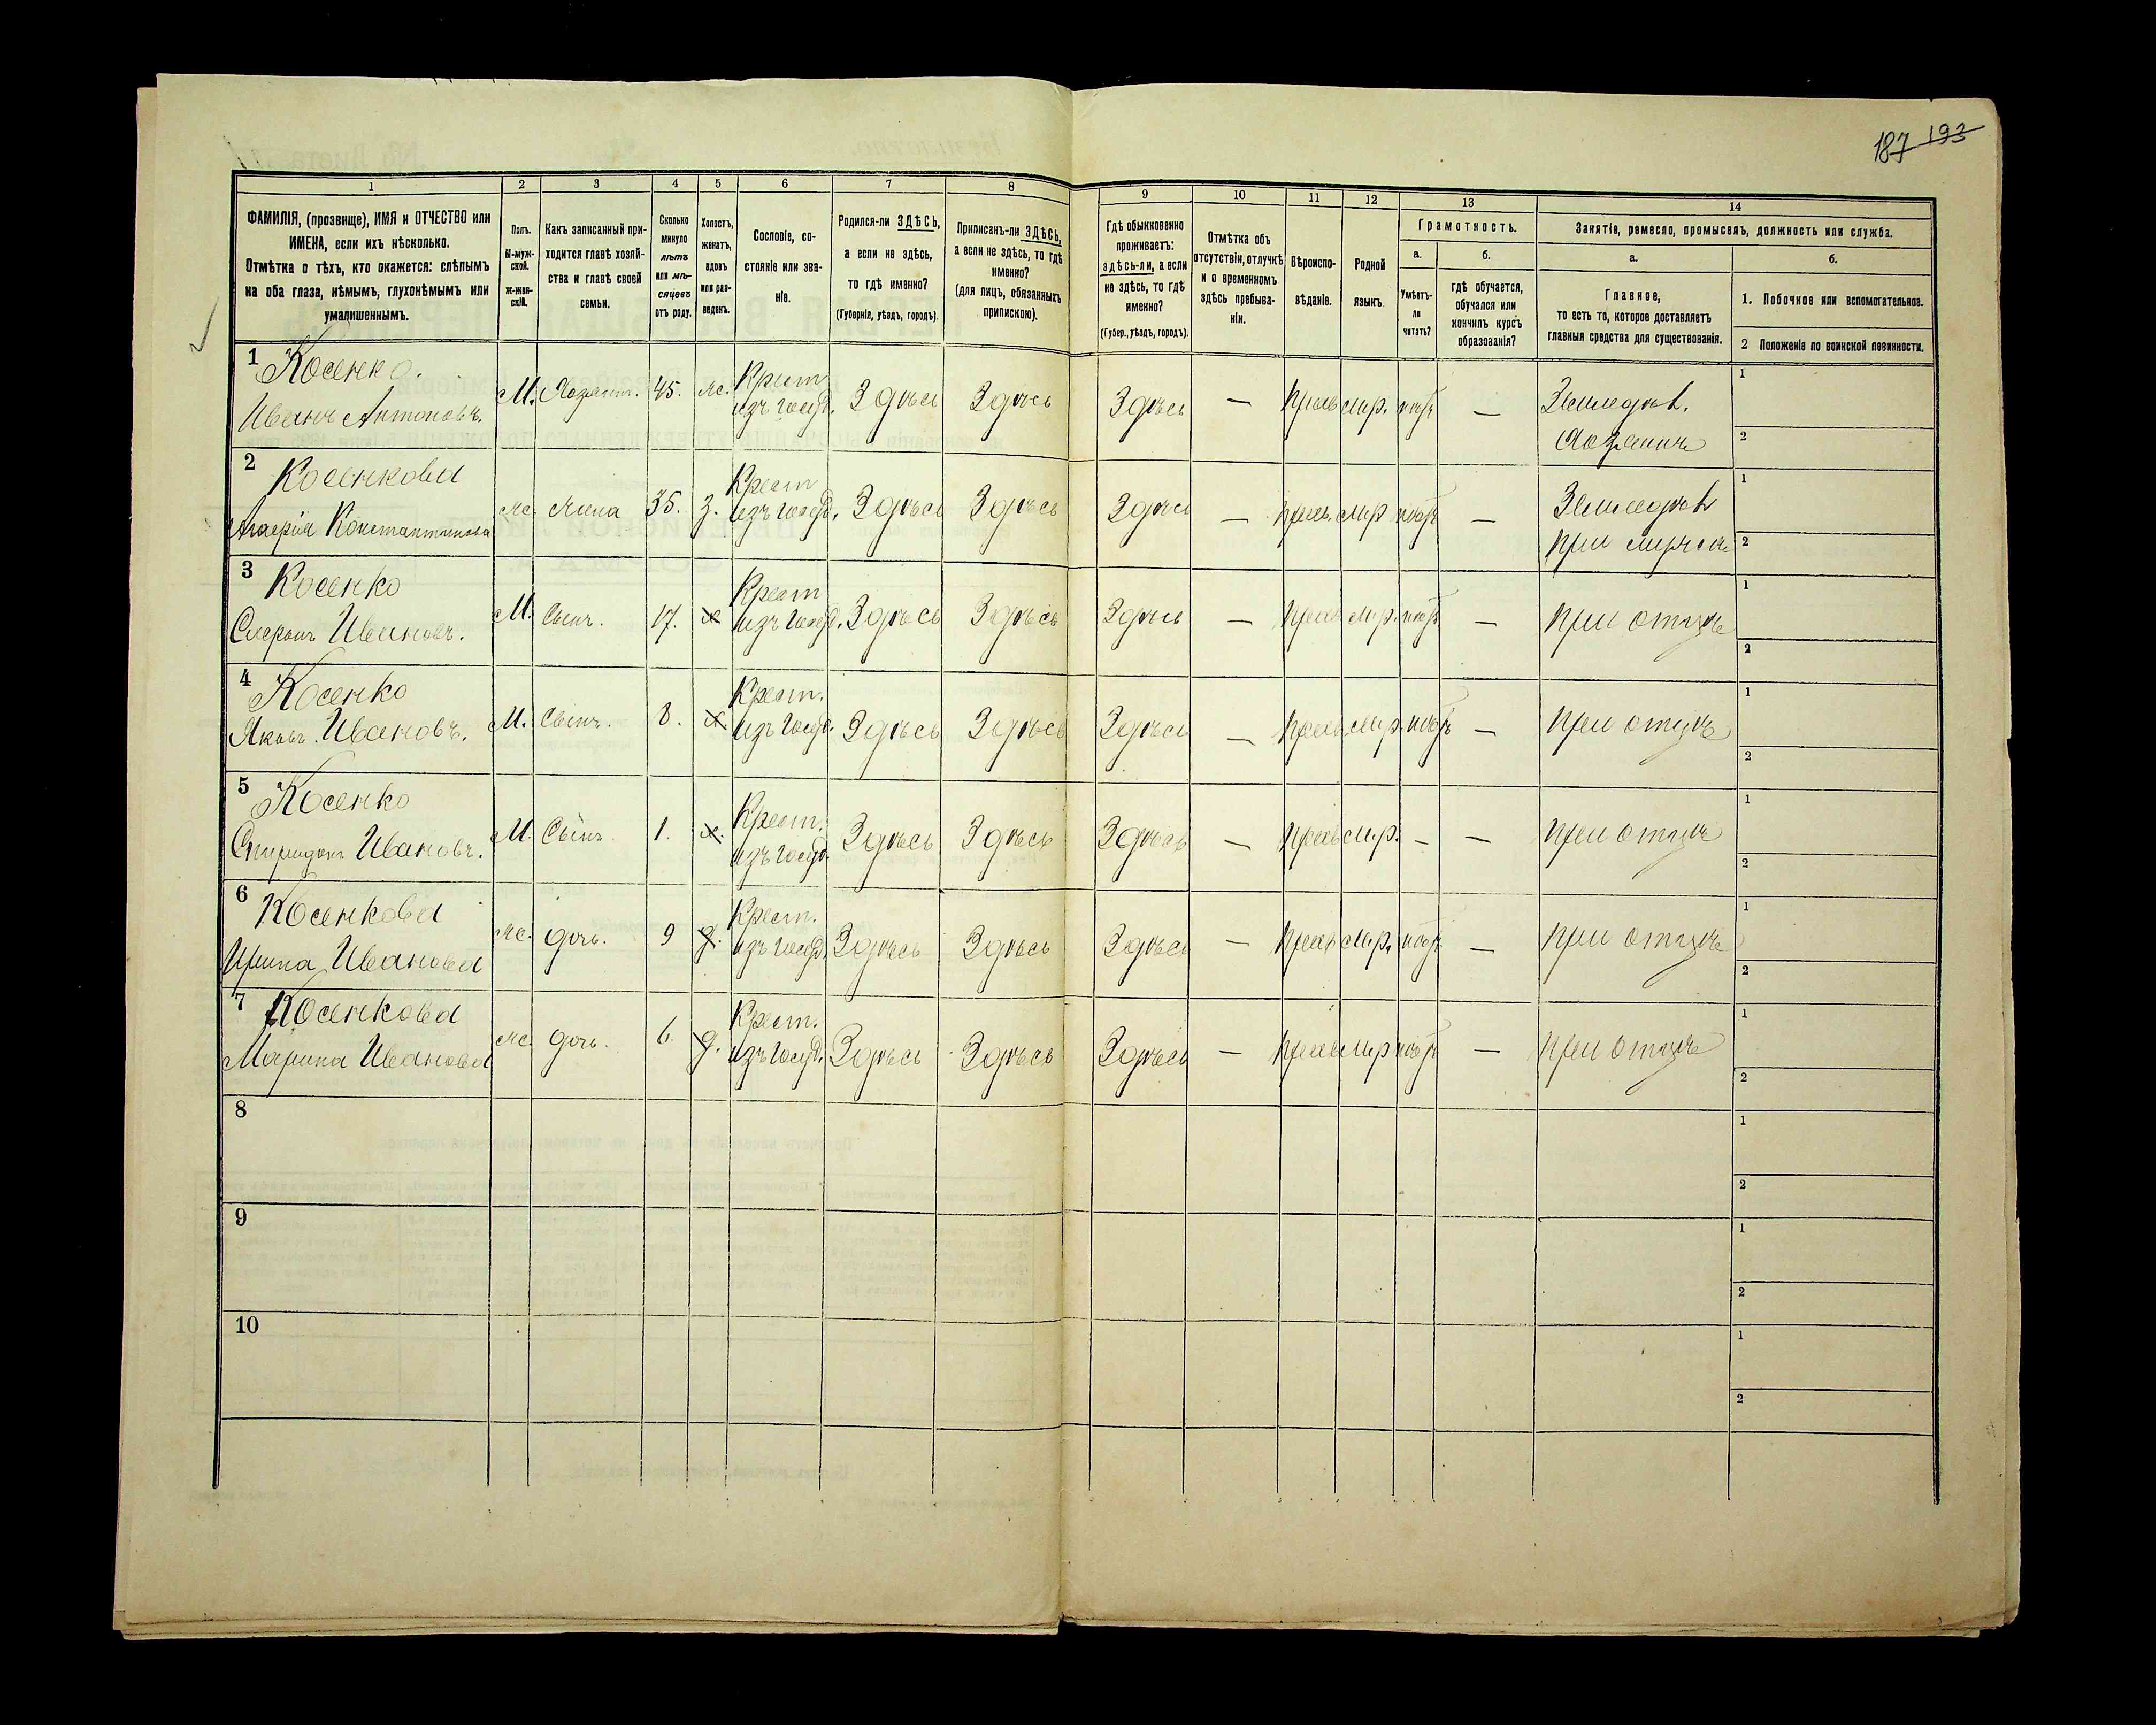 187 193
1
2
3
4
5
6
7
8
9
10
11
12
13
14
ФАМИЛІЯ, (прозвище), ИМЯ и ОТЧЕСТВО или
ИМЕНА, если ихъ нѣсколько.
Отмѣтка о тѣхъ, кто окажется: слѣпымъ
на оба глаза, нѣмымъ, глухонѣмымъ или
умалишеннымъ.
Полъ.
М-муж-
ской.
Ж-жен-
скій.
Какъ записанный при-
ходится главѣ хозяй-
ства и главѣ своей
семьи.
Сколько
минуло
лѣтъ
или мѣ-
сяцевъ
отъ роду.
Холостъ,
женатъ,
вдовъ
или раз-
веденъ.
Сословіе, со-
стояніе или зва-
ніе.
Родился-ли ЗДѢСЬ,
а если не здѣсь,
то гдѣ именно?
(Губернія, уѣздъ, городъ).
Приписанъ-ли ЗДѢСЬ,
а если не здѣсь, то гдѣ
именно?
(для лицъ, обязанныхъ
припискою).
Гдѣ обыкновенно
проживаетъ:
здѣсь-ли, а если
не здѣсь, то гдѣ
именно?
(Губер., уѣздъ, городъ).
Отмѣтка объ
отсутствіи, отлучкѣ
и о временномъ
здѣсь пребыва-
ніи.
Вѣроиспо-
вѣданіе.
Родной
языкъ.
Грамотность.
а.
Умѣетъ-
ли
читать?
б.
гдѣ обучается,
обучался или
кончилъ курсъ
образованія?
Занятіе, ремесло, промыселъ, должность или служба.
а.
Главное,
то есть то, которое доставляетъ
главныя средства для существованія.
б.
1. Побочное или вспомогательное.
2 Положеніе по воинской повинности.
1 Косенко.
Иванъ Антоновъ. М. Хозяин. 45. ж. Крест. изъ госуд. Здѣсь Здѣсь Здѣсь — Прав. мр. нѣтъ — Земледѣл.
Хозяинъ
1
2
2 Косенкова
Константинова ж. Жена 35. з. Крест изъ госуд. Здѣсь Здѣсь Здѣсь — Прав. мр нѣтъ — Земледѣл
при мужѣ
1
2
3 Косенко
Ивановъ. М. Сынъ. 17. х Крест изъ госуд. Здѣсь Здѣсь Здѣсь — Прав мр. нѣтъ — при отцѣ
1
2
4 Косенко
Яковъ Ивановъ. М. Сынъ. 8. х. Крест. изъ госуд. Здѣсь Здѣсь Здѣсь — Прав. мр. нѣтъ — при отцѣ
1
2
5 Косенко
Спиридонъ Ивановъ. М. Сынъ. 1. х. Крест. изъ госуд. Здѣсь Здѣсь Здѣсь — Прав мр. — — при отцѣ
1
2
6 Косенкова
Ирина Иванова ж. дочь. 9 д. Крест. изъ госуд. Здѣсь Здѣсь Здѣсь — Прав мр. нѣтъ — при отцѣ
1
2
7 Косенкова
Марина Иванова ж. дочь. 6. д. Крест. изъ госуд. Здѣсь Здѣсь Здѣсь — Прав мр нѣтъ — при отцѣ
1
2
8
1
2
9
1
2
10
1
2